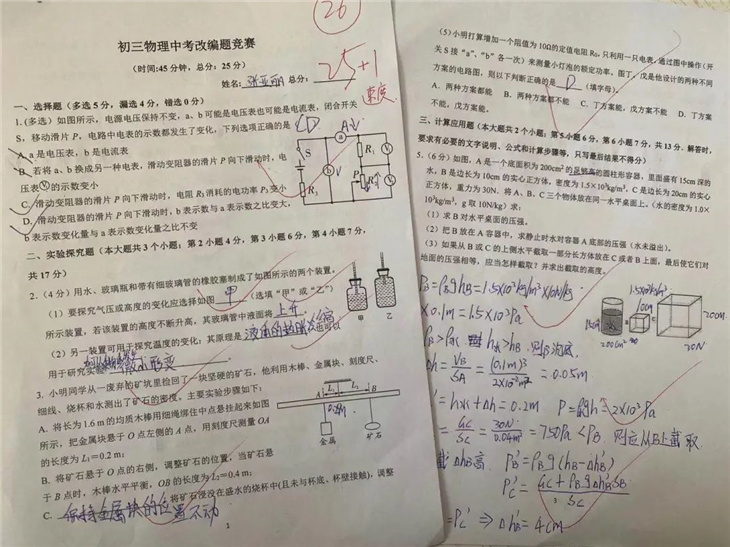 26
初三物理中考改编题竞赛
(时间:45分钟，总分：25分)
姓名: 张亚丽A 总分:
25+1
速度
一、选择题（多选5分，漏选4分，错选0分）
1.(多选) 如图所示，电源电压保持不变，a、b可能是电压表也可能是电流表，闭合开关
S，移动滑片P，电路中电表的示数都发生了变化，下列选项正确的是( CD )
A. a是电压表，b是电流表
B. 若将a、b换成另一种电表，滑动变阻器的滑片P向下滑动时，电
压表Ⓥ的示数变小
C. 滑动变阻器的滑片P向下滑动时，电阻R₃消耗的电功率P₃变小
D. 滑动变阻器的滑片P向下滑动时，b表示数与a表示数之比变大，
b表示数变化量与a表示数变化量之比不变
A
a
S
b
V
R₁
P
R₂
V
R₃
二、实验探究题（本大题共3个小题；第2小题4分，第3小题6分，第4小题7分，
共17分）
2.（4分）用水、玻璃瓶和带有细玻璃管的橡胶塞制成了如图所示的两个装置。
（1）要探究气压或高度的变化应选择如图 甲 （选填“甲”或“乙”）
所示装置，若该装置的高度不断升高，其玻璃管中液面将 上升 。
（2）另一装置可用于探究温度的变化；其原理是 液体的热胀冷缩 也可以
用于研究实验 微小形变
甲
乙
3. 小明同学从一废弃的矿坑里捡回了一块坚硬的矿石，他利用木棒、金属块、刻度尺、
细线、烧杯和水测出了矿石的密度，主要实验步骤如下：
A. 将长为1.6m的均质木棒用细绳绑住中点悬挂起来如图
所示，把金属块悬于O点左侧的A点，用刻度尺测量OA
的长度为L₁=0.2m；
B. 将矿石悬于O点的右侧，调整矿石的位置，当矿石悬
于B点时，木棒水平平衡，OB的长度为L₂=0.4m；
C. 保持金属块的位置不动 将矿石浸没在盛水的烧杯中(且未与杯底、杯壁接触)，调整
A
L₁
L₂
B
金属
矿石
1
（5）小明打算增加一个阻值为10Ω的定值电阻R₀，只利用一只电表，通过图中操作（开
关S接“a”、“b”各一次）来测量小灯泡的额定功率。图丁、戊是他设计的两种不同
方案的电路图，则以下判断正确的是 D （填字母）。
A. 两种方案都能 B. 两种方案都不能 C. 丁方案能，戊方案不能 D. 丁方案
不能，戊方案能。
三、计算应用题（本大题共2个小题；第5小题6分，第6小题7分，共13分。解答时，
要求有必要的文字说明、公式和计算步骤等，只写最后结果不得分）
5.（6分）如图，A是一个底面积为200cm²的足够高的圆柱形容器，里面盛有15cm深的
水，B是边长为10cm的实心正方体，密度为1.5×10³kg/m³，C是边长为20cm的实心
正方体，重力为30N。将A、B、C三个物体放在同一水平桌面上。(水的密度为1.0×
10³kg/m³，g取10N/kg) 求：
（1）求B对水平桌面的压强。
（2）把B放在A容器中，求静止时水对容器A底部的压强（水未溢出）。
（3）如果从B或C的上侧水平截取一部分长方体放在C或者B上面，最后使它们对
地面的压强相等，应当怎样截取？并求出截取的高度。
P_B=ρ_Bgh_B=1.5×10³kg/m³×10N/kg
×0.1m=1.5×10³Pa
ρ_B>ρ水 且h水>h_B 则B沉底
Δh=V_B/S_A=(0.1m)³/2×10⁻²m²=0.05m
h'=h水+Δh=0.2m P=ρgh'=2×10³Pa
=G_C/S_C=30N/0.04m²=750Pa<P_B 则应从B上截取
截Δh_B高 P_B'=ρ_Bg(h_B-Δh_B')
P_C'=G_C+ρ_BgΔh_BS_B/S_C
=P_C' ⇒Δh_B'=4cm
15cm
200cm²
1.5×10³kg/m³
10cm
20cm
30N
3